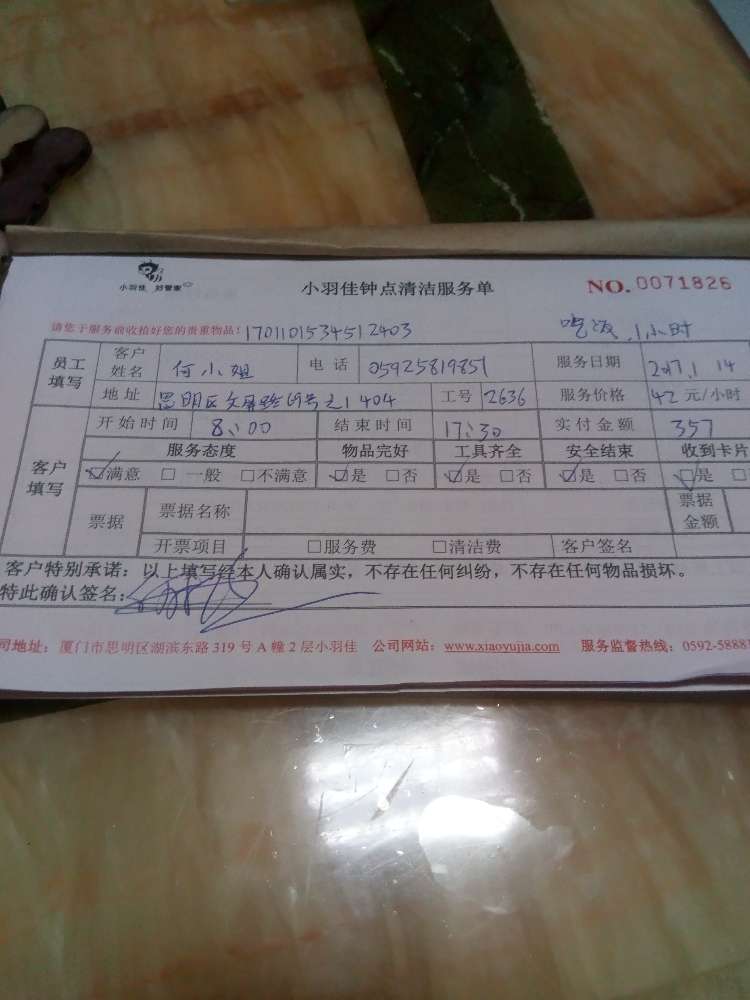 小羽佳 好管家
小羽佳钟点清洁服务单
NO. 0071826
请您于服务前收拾好您的贵重物品! 1701101534512403 吃饭 1小时
员工填写 客户姓名 何小姐 电话 05925819851 服务日期 2017.1 14
地址 思明区文屏路69号之1 404 工号 2636 服务价格 42 元/小时
客户填写 开始时间 8:00 结束时间 17:30 实付金额 357
服务态度 物品完好 工具齐全 安全结束 收到卡片
☑满意 □一般 □不满意 ☑是 □否 ☑是 □否 ☑是 □否 ☑是 □
票据 票据名称 票据金额
开票项目 □服务费 □清洁费 客户签名
客户特别承诺：以上填写经本人确认属实，不存在任何纠纷，不存在任何物品损坏。
特此确认签名：
司地址：厦门市思明区湖滨东路 319 号 A 幢 2 层小羽佳 公司网站：www.xiaoyujia.com 服务监督热线：0592-58881